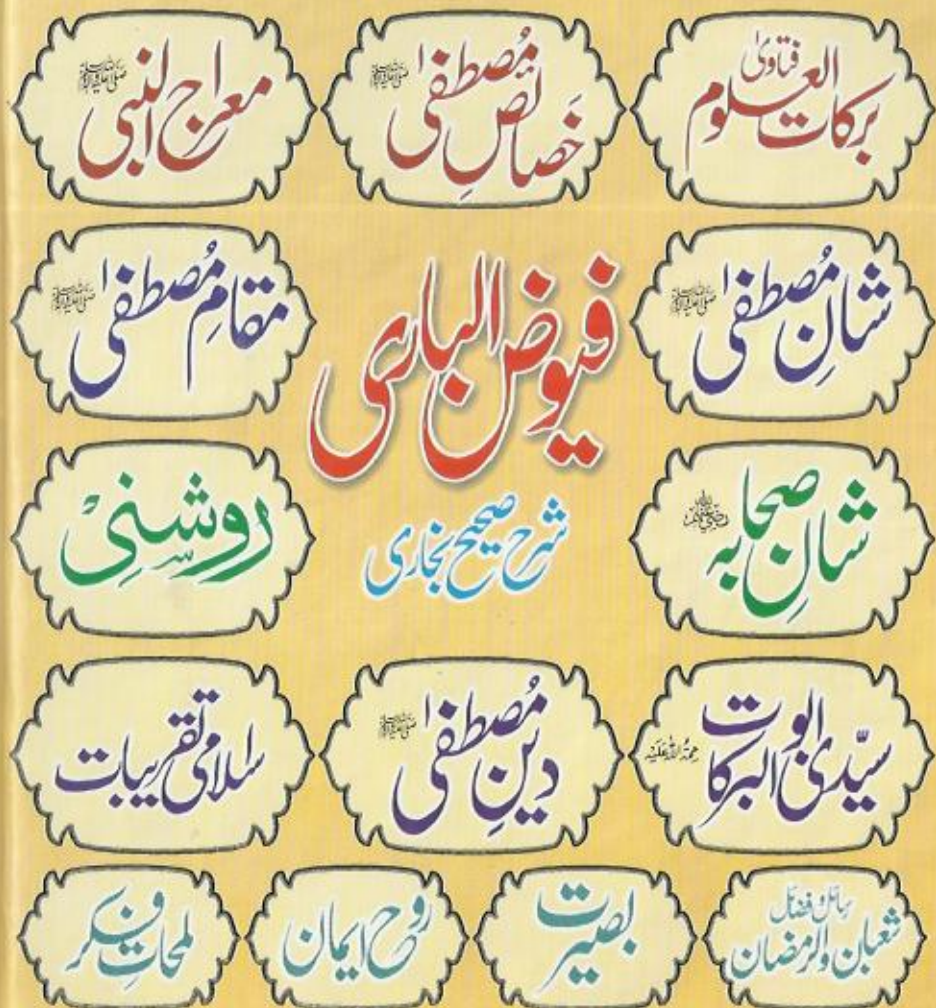 فتاویٰ برکات العلوم
خصائصِ مصطفیٰ ﷺ
معراج النبی ﷺ
شانِ مصطفیٰ ﷺ
فیوض الباری
مقامِ مصطفیٰ ﷺ
شانِ صحابہ
شرح صحیح بخاری
روشنی
سیّدی ابوالبرکات رحمۃ اللہ علیہ
دینِ مصطفیٰ ﷺ
اسلامی تقریبات
مسائل و فضائل
شعبان و الرمضان
بصیرت
روح ایمان
لمحات فکر